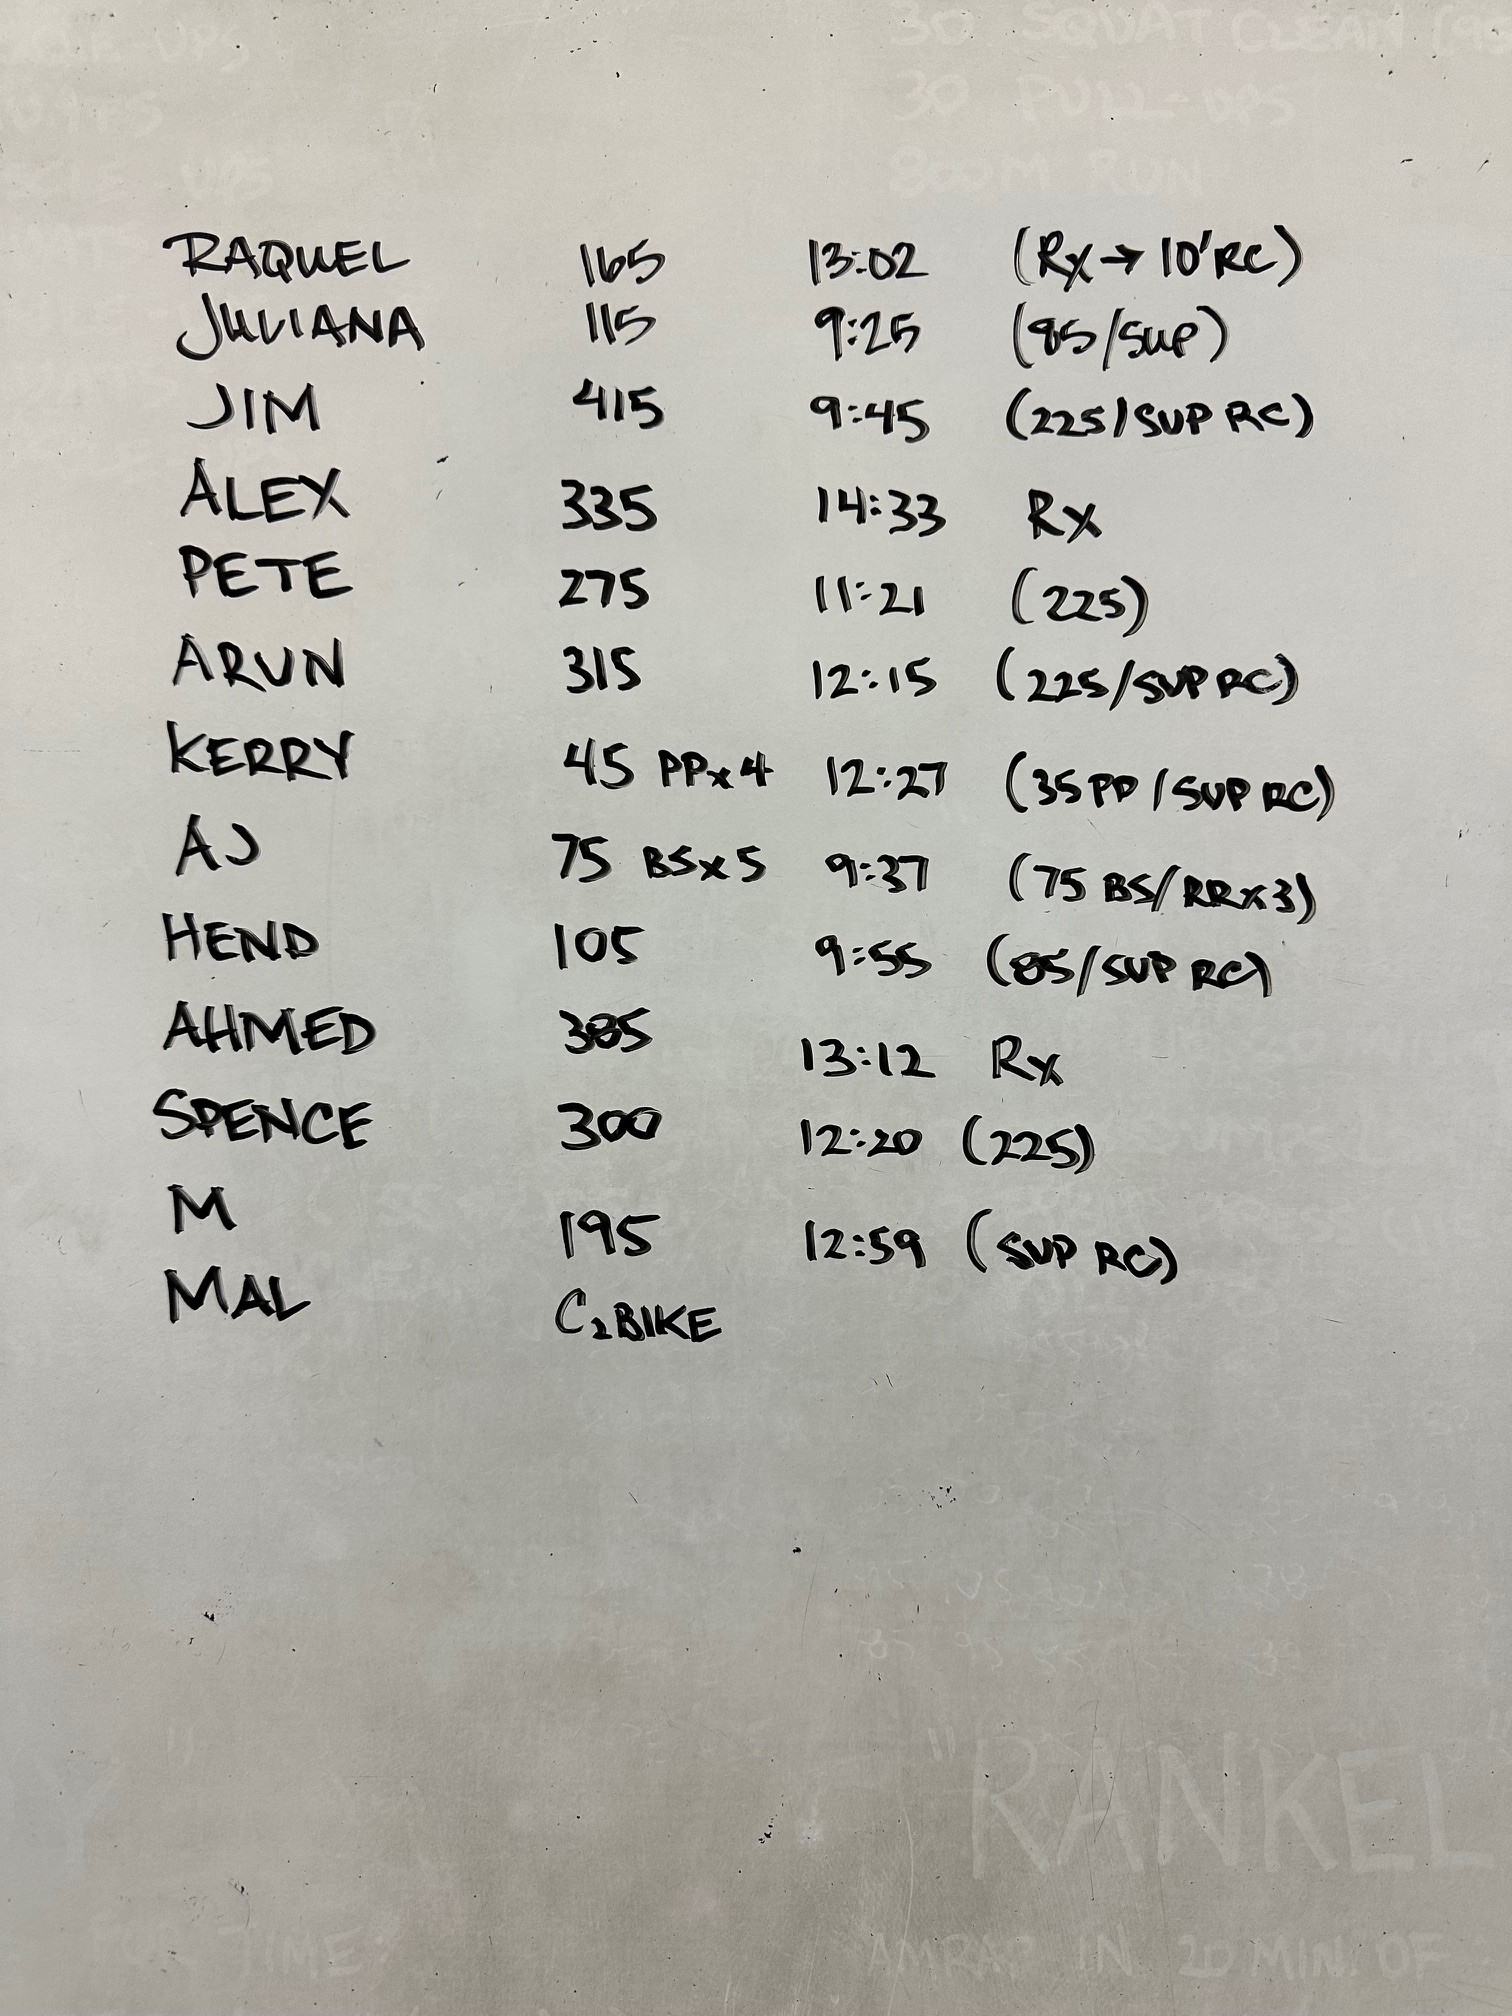 30 SQUAT CLEAN
30 PULL-UPS
800M RUN
RAQUEL 165 13:02 (Rx→10'RC)
JULIANA 115 9:25 (85/SUP)
JIM 415 9:45 (225/SUP RC)
ALEX 335 14:33 Rx
PETE 275 11:21 (225)
ARUN 315 12:15 (225/SUP RC)
KERRY 45 PPx4 12:27 (35PP/SUP RC)
AJ 75 BSx5 9:37 (75 BS/RRx3)
HEND 105 9:55 (85/SUP RC)
AHMED 385 13:12 Rx
SPENCE 300 12:20 (225)
M 195 12:59 (SUP RC)
MAL C2BIKE
"RANKEL
FOR TIME: AMRAP IN 20 MIN. OF